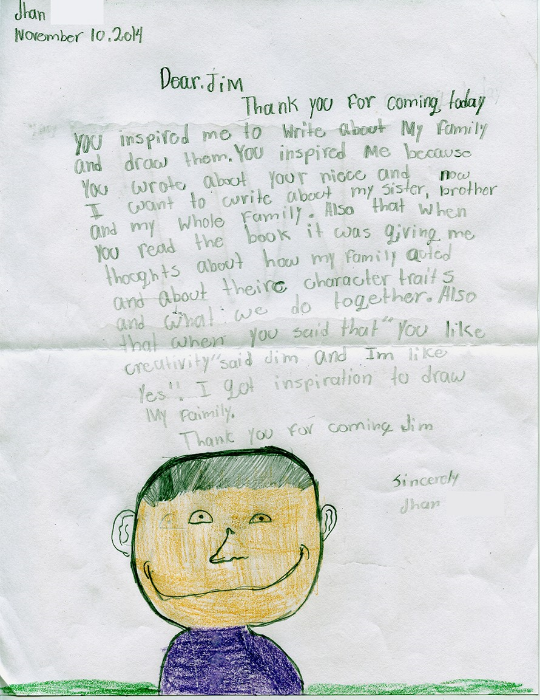 Jhan
November 10, 2014
Dear. Jim
Thank you for coming today
You inspired me to write about My family
and draw them. You inspired Me because
You wrote about your niece and now
I want to write about my sister, brother
and my whole Family. Also that when
You read the book it was giving me
thoughts about how my family acted
and about theire character traits
and what we do together. Also
that when you said that "You like
creativity" said Jim and Im like
Yes!! I got inspiration to draw
My Faimily.
Thank you for coming Jim
Sincerely
Jhan